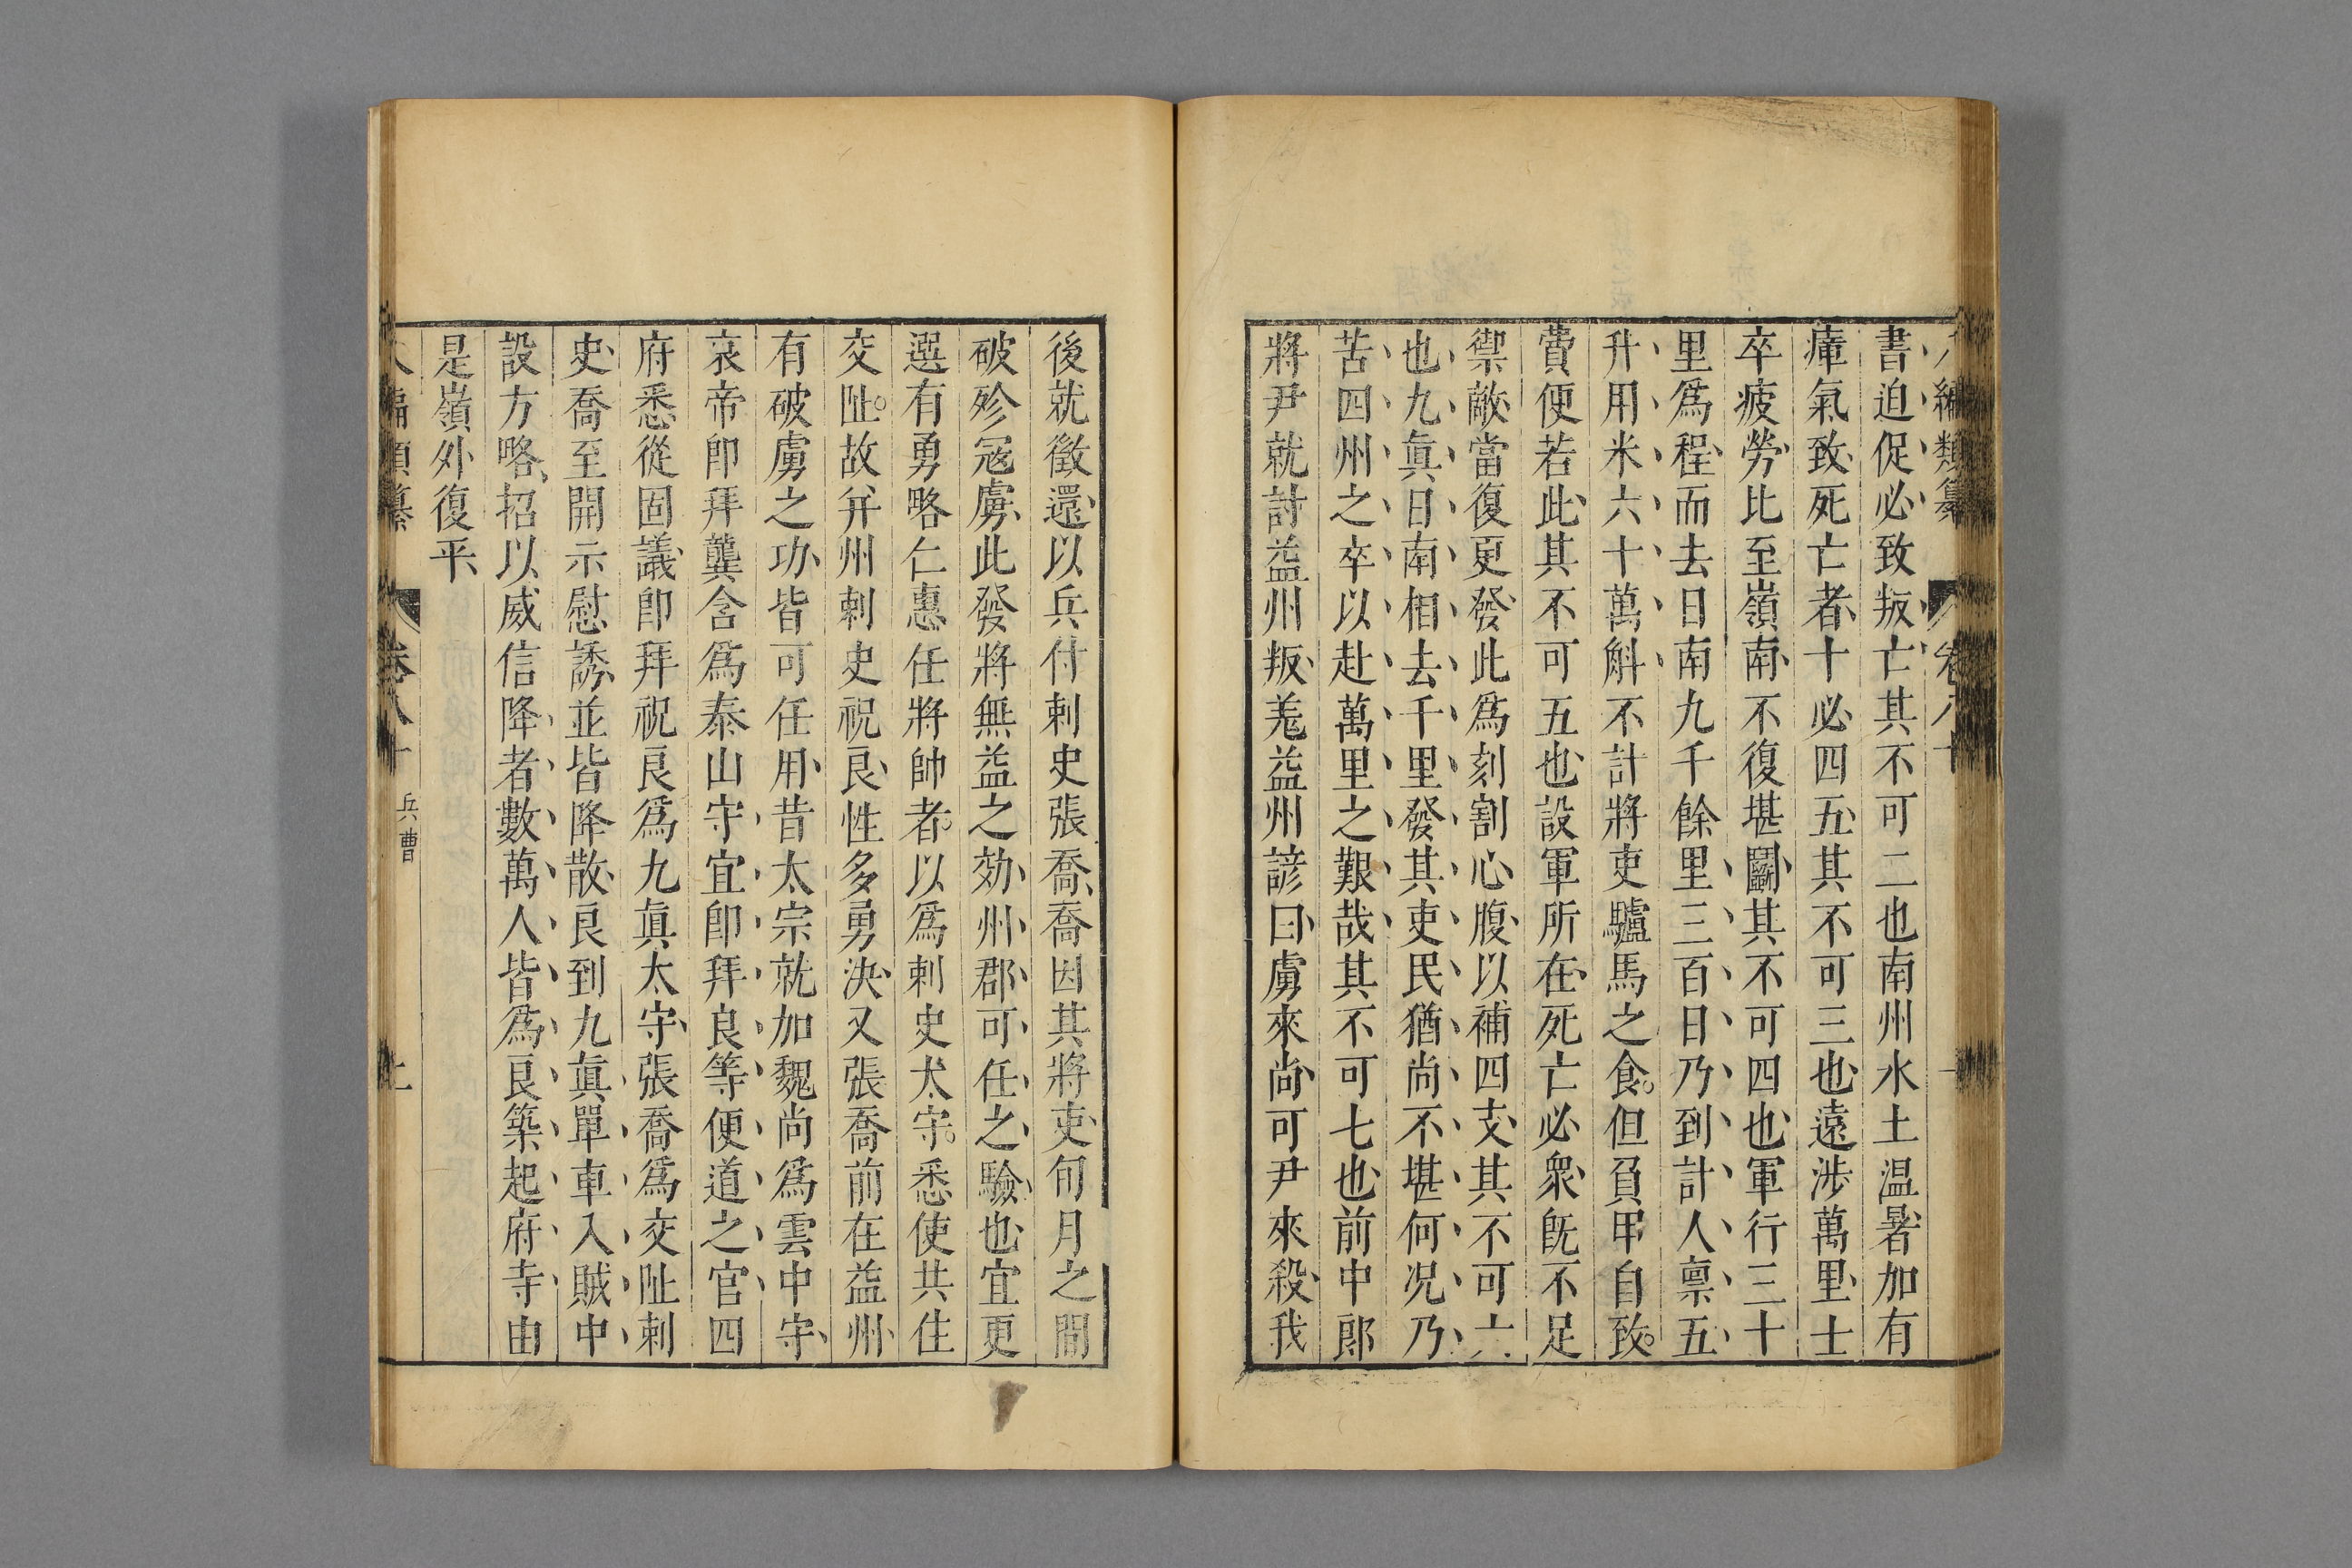 八編類纂 卷八十
書迫促必致叛亡其不可二也南州水土温暑加有
瘴氣致死亡者十必四五其不可三也遠涉萬里士
卒疲勞比至嶺南不復堪鬬其不可四也軍行三十
里爲程而去日南九千餘里三百日乃到計人禀五
升用米六十萬斛不計將吏驢馬之食但負甲自致
費便若此其不可五也設軍所在死亡必衆旣不足
禦敵當復更發此爲刻割心腹以補四支其不可六
也九眞日南相去千里發其吏民猶尚不堪何况乃
苦四州之卒以赴萬里之艱哉其不可七也前中郎
將尹就討益州叛羗益州諺曰虜來尚可尹來殺我
後就徵還以兵付刺史張喬喬因其將吏旬月之間
破殄冦虜此發將無益之効州郡可任之驗也宜更
選有勇略仁惠任將帥者以爲刺史太守悉使共住
交阯故幷州刺史祝良性多勇決又張喬前在益州
有破虜之功皆可任用昔太宗就加魏尚爲雲中守
哀帝卽拜龔舍爲泰山守宜卽拜良等便道之官四
府悉從固議卽拜祝良爲九眞太守張喬爲交阯刺
史喬至開示慰誘並皆降散良到九眞單車入賊中
設方略招以威信降者數萬人皆爲良築起府寺由
是嶺外復平
八編類纂 卷八十 兵曹